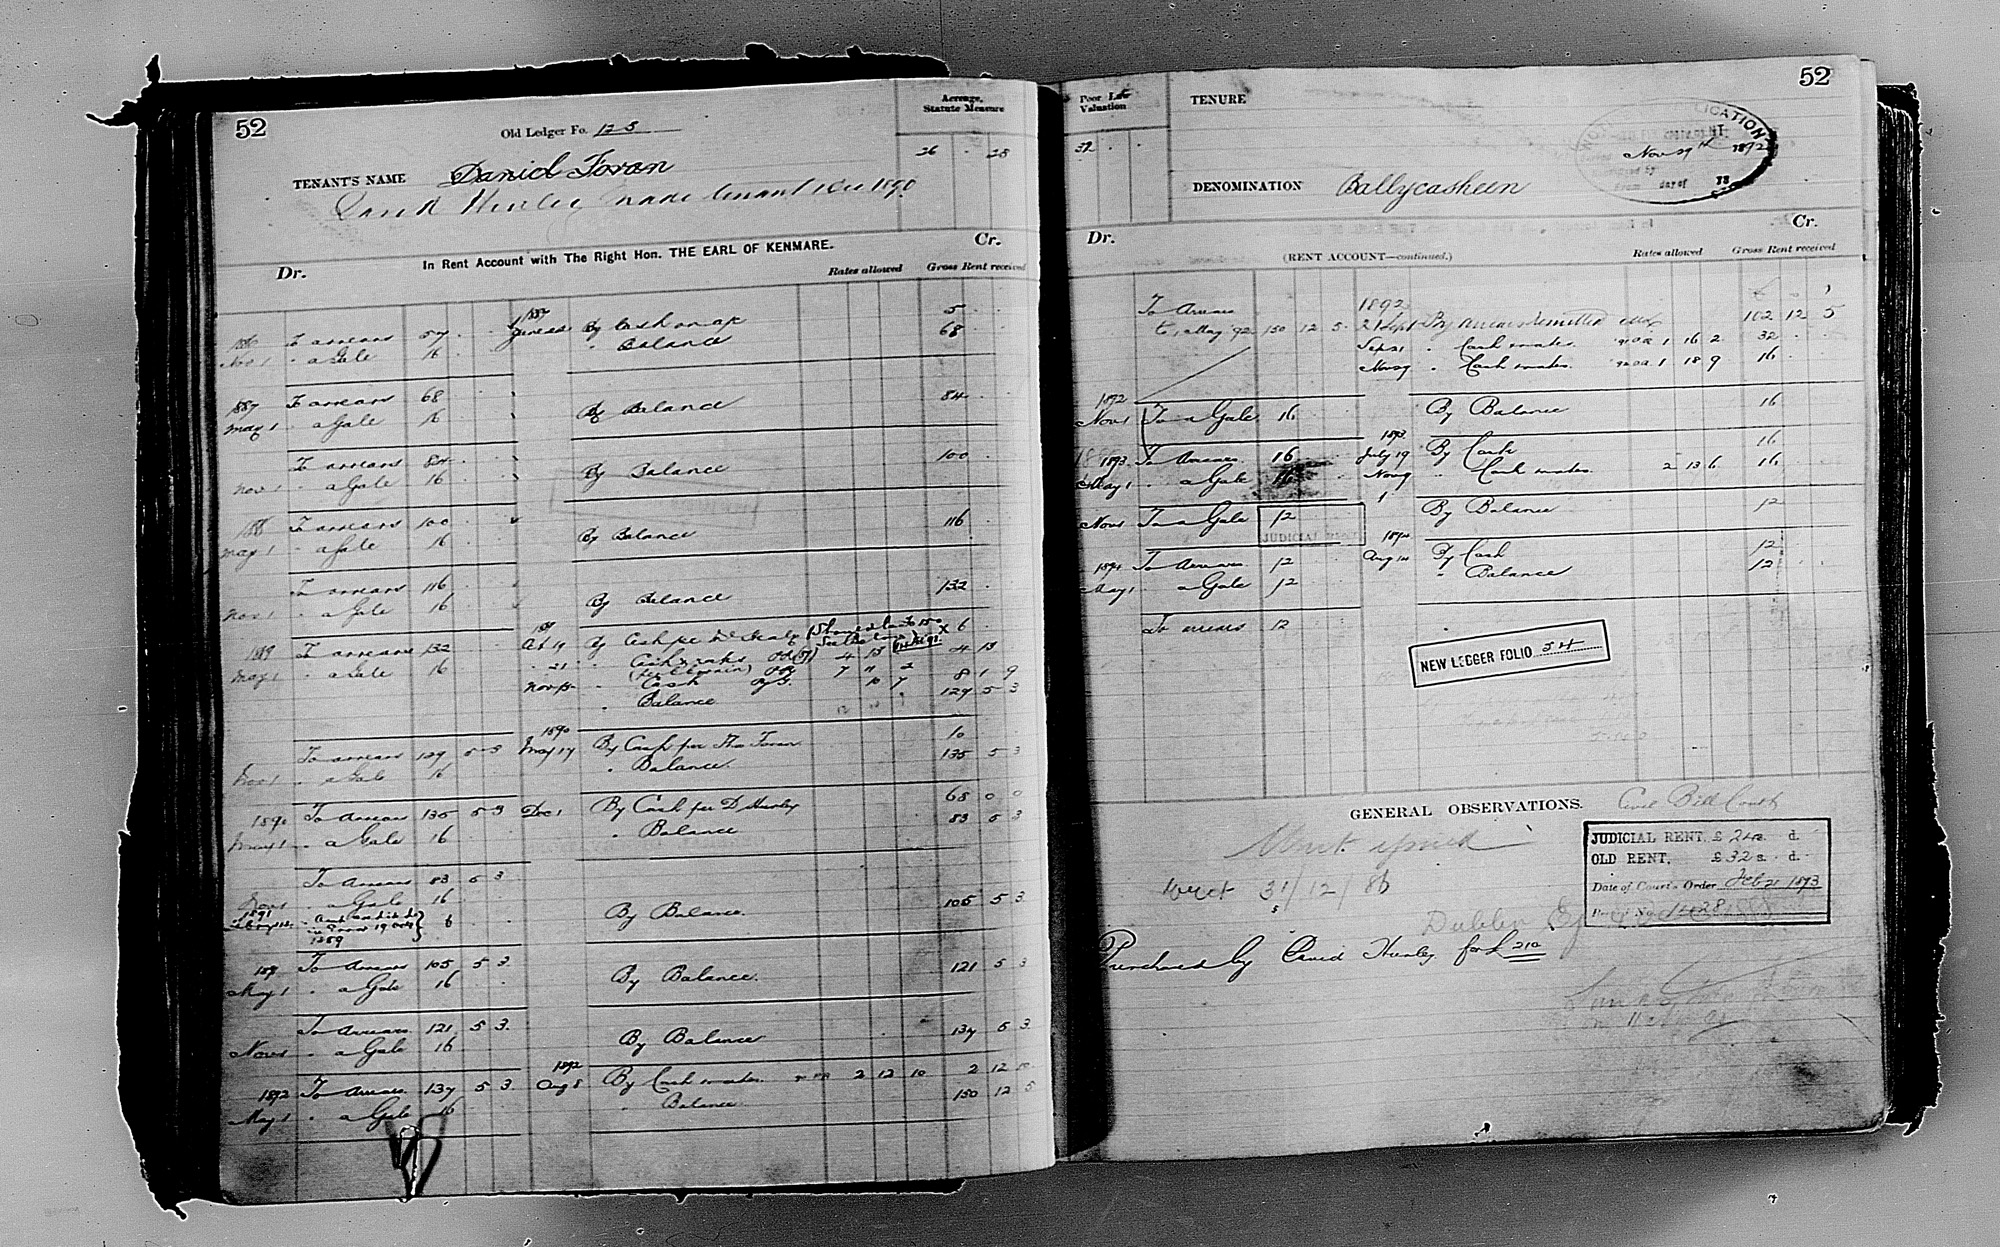 52
Old Ledger Fo. 125
Acreage, Statute Measure
26 . 28
TENANT'S NAME Daniel Foran
David Hurley made tenant Dec 1890
In Rent Account with The Right Hon. THE EARL OF KENMARE.
Dr.
Cr.
Rates allowed
Gross Rent received
1886 To arrears 57
Nov 1 " a Gale 16
1887
By Cash on a/c 5
" Balance 68
1887 To arrears 68
May 1 " a Gale 16
By Balance 84
To arrears 84
Nov 1 " a Gale 16
By Balance 100
1888 To arrears 100
May 1 " a Gale 16
By Balance 116
To arrears 116
Nov 1 " a Gale 16
By Balance 132
1889 To arrears 132
May 1 " a Gale 16
By Cash per 6
" 21 " Cash & rates 4 13 4 13
Nov " Cash 8 1 9
" Balance 129 5 3
To arrears 129 5 3
Nov 1 " a Gale 16
1890
May 17 By Cash per Thos Foran 10
" Balance 135 5 3
1890 To Arrears 135 5 3
May 1 " a Gale 16
Dec 1 By Cash per D Hurley 68 0 0
" Balance 83 5 3
To Arrears 83 5 3
Nov 1 " a Gale 16
1891
6
1889
By Balance 105 5 3
1891 To Arrears 105 5 3
May 1 " a Gale 16
By Balance. 121 5 3
To Arrears 121 5 3
Nov 1 " a Gale 16
By Balance 137 5 3
1892 To Arrears 137 5 3
May 1 " a Gale 16
1892
Aug 8 By Cash & rates 2 12 10 2 12 10
" Balance 150 12 5
52
Poor Law Valuation
32
TENURE
Nov 29th 1892
day of
DENOMINATION Ballycasheen
Dr.
(RENT ACCOUNT—continued.)
Cr.
Rates allowed
Gross Rent received
To Arrears
to 1 May '92 150 12 5
1892
21 Sept By Arrears remitted 102 12 5
Sep 21 " Cash & rates 1 16 2 32
Nov 9 " Cash & rates 1 18 9 16
1892
Nov 1 To a Gale 16
By Balance 16
1893 To Arrears 16
May 1 " a Gale 16
1893
July 19 By Cash 16
Nov 9 " Cash & rates 2 13 6 16
Nov 1 To a Gale 12
JUDICIAL RENT
By Balance 12
1894 To Arrears 12
May 1 " a Gale 12
1894
Aug 14 By Cash 12
" Balance 12
To arrears 12
NEW LEDGER FOLIO 54
GENERAL OBSERVATIONS.
Civil Bill Court
JUDICIAL RENT. £ 24 s. d.
OLD RENT. £ 32 s. d.
Date of Court's Order Feb 21 1893
1428
Writ issued
Writ 31/12/86
Purchased by David Hurley for £210